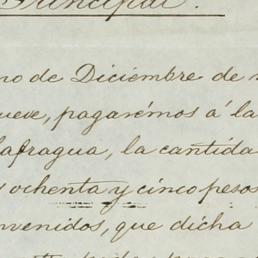 Principal.
no de Diciembre de
ueve, pagarémos á la
lafragua, la cantida
y ochenta y cinco pesos
nvenidos, que dicha